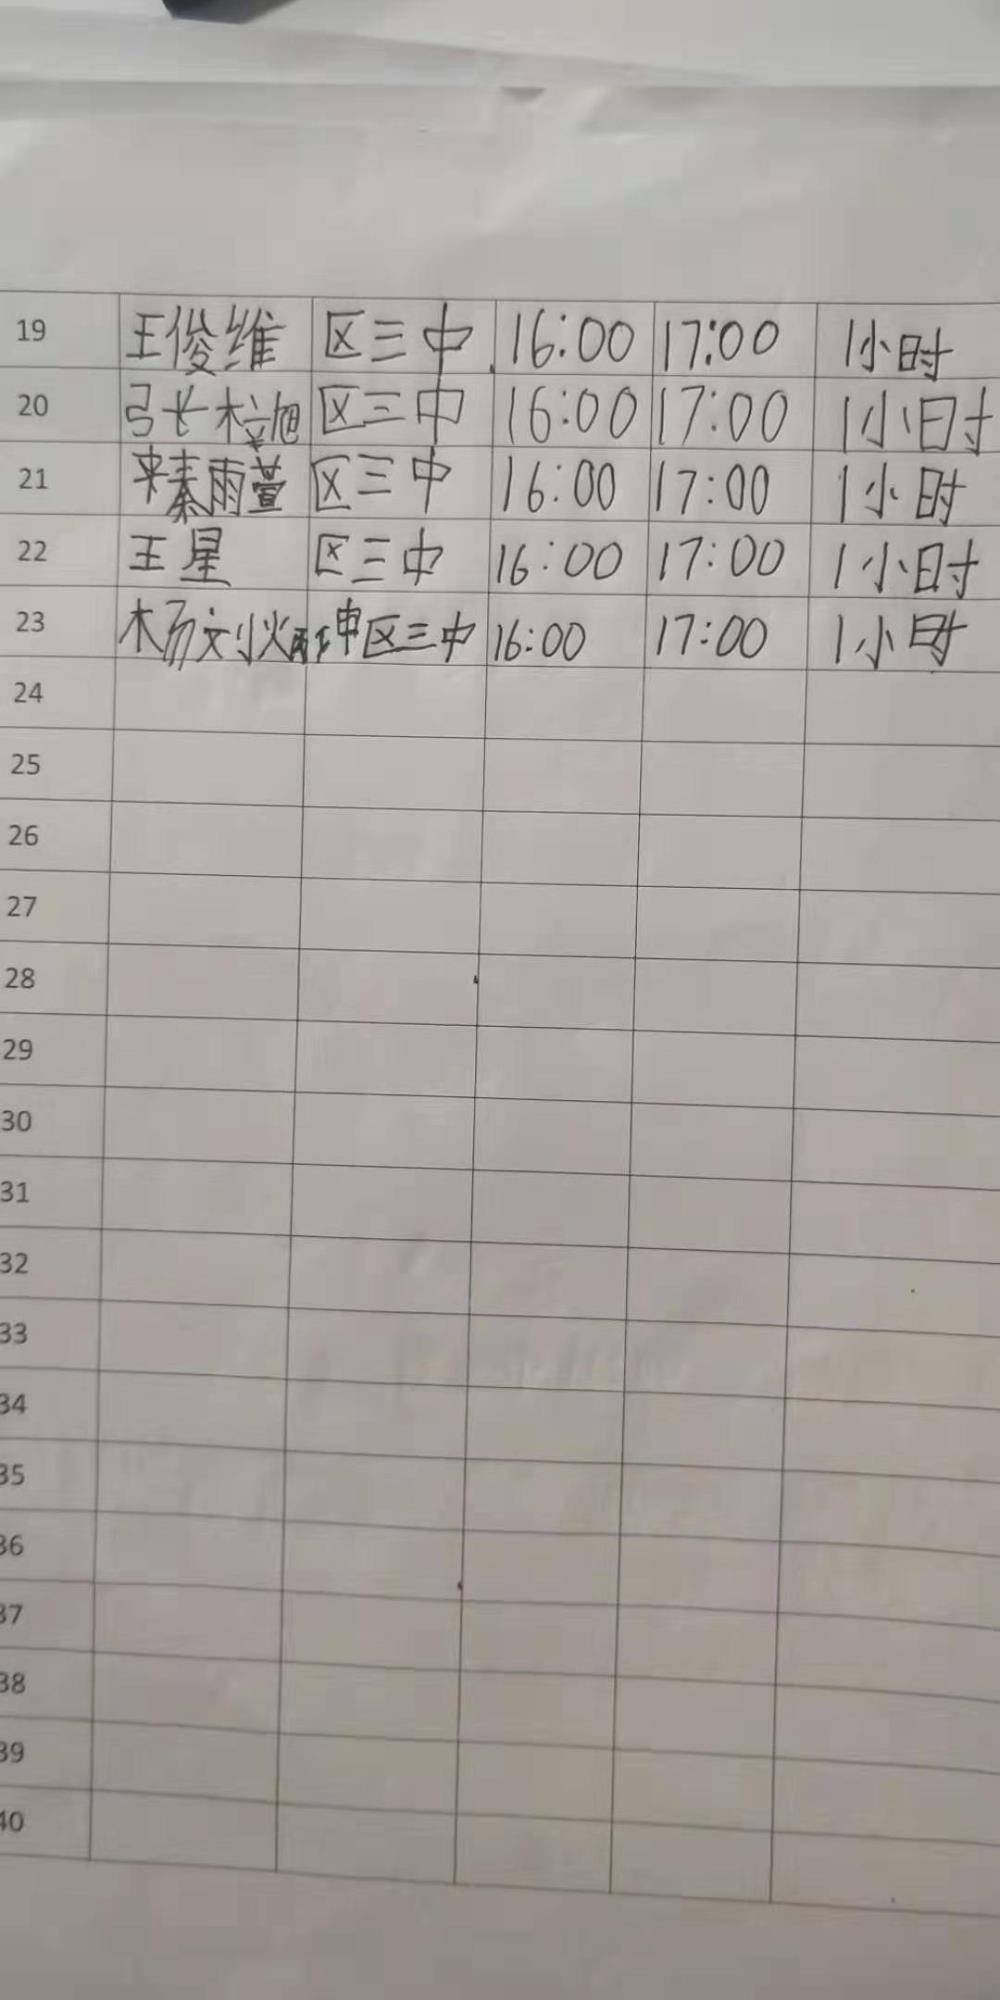 19 王俊维 区三中 16:00 17:00 1小时
20 张梓旭 区三中 16:00 17:00 1小时
21 秦雨萱 区三中 16:00 17:00 1小时
22 王星 区三中 16:00 17:00 1小时
23 杨刘 坤 区三中 16:00 17:00 1小时
24
25
26
27
28
29
30
31
32
33
34
35
36
37
38
39
40